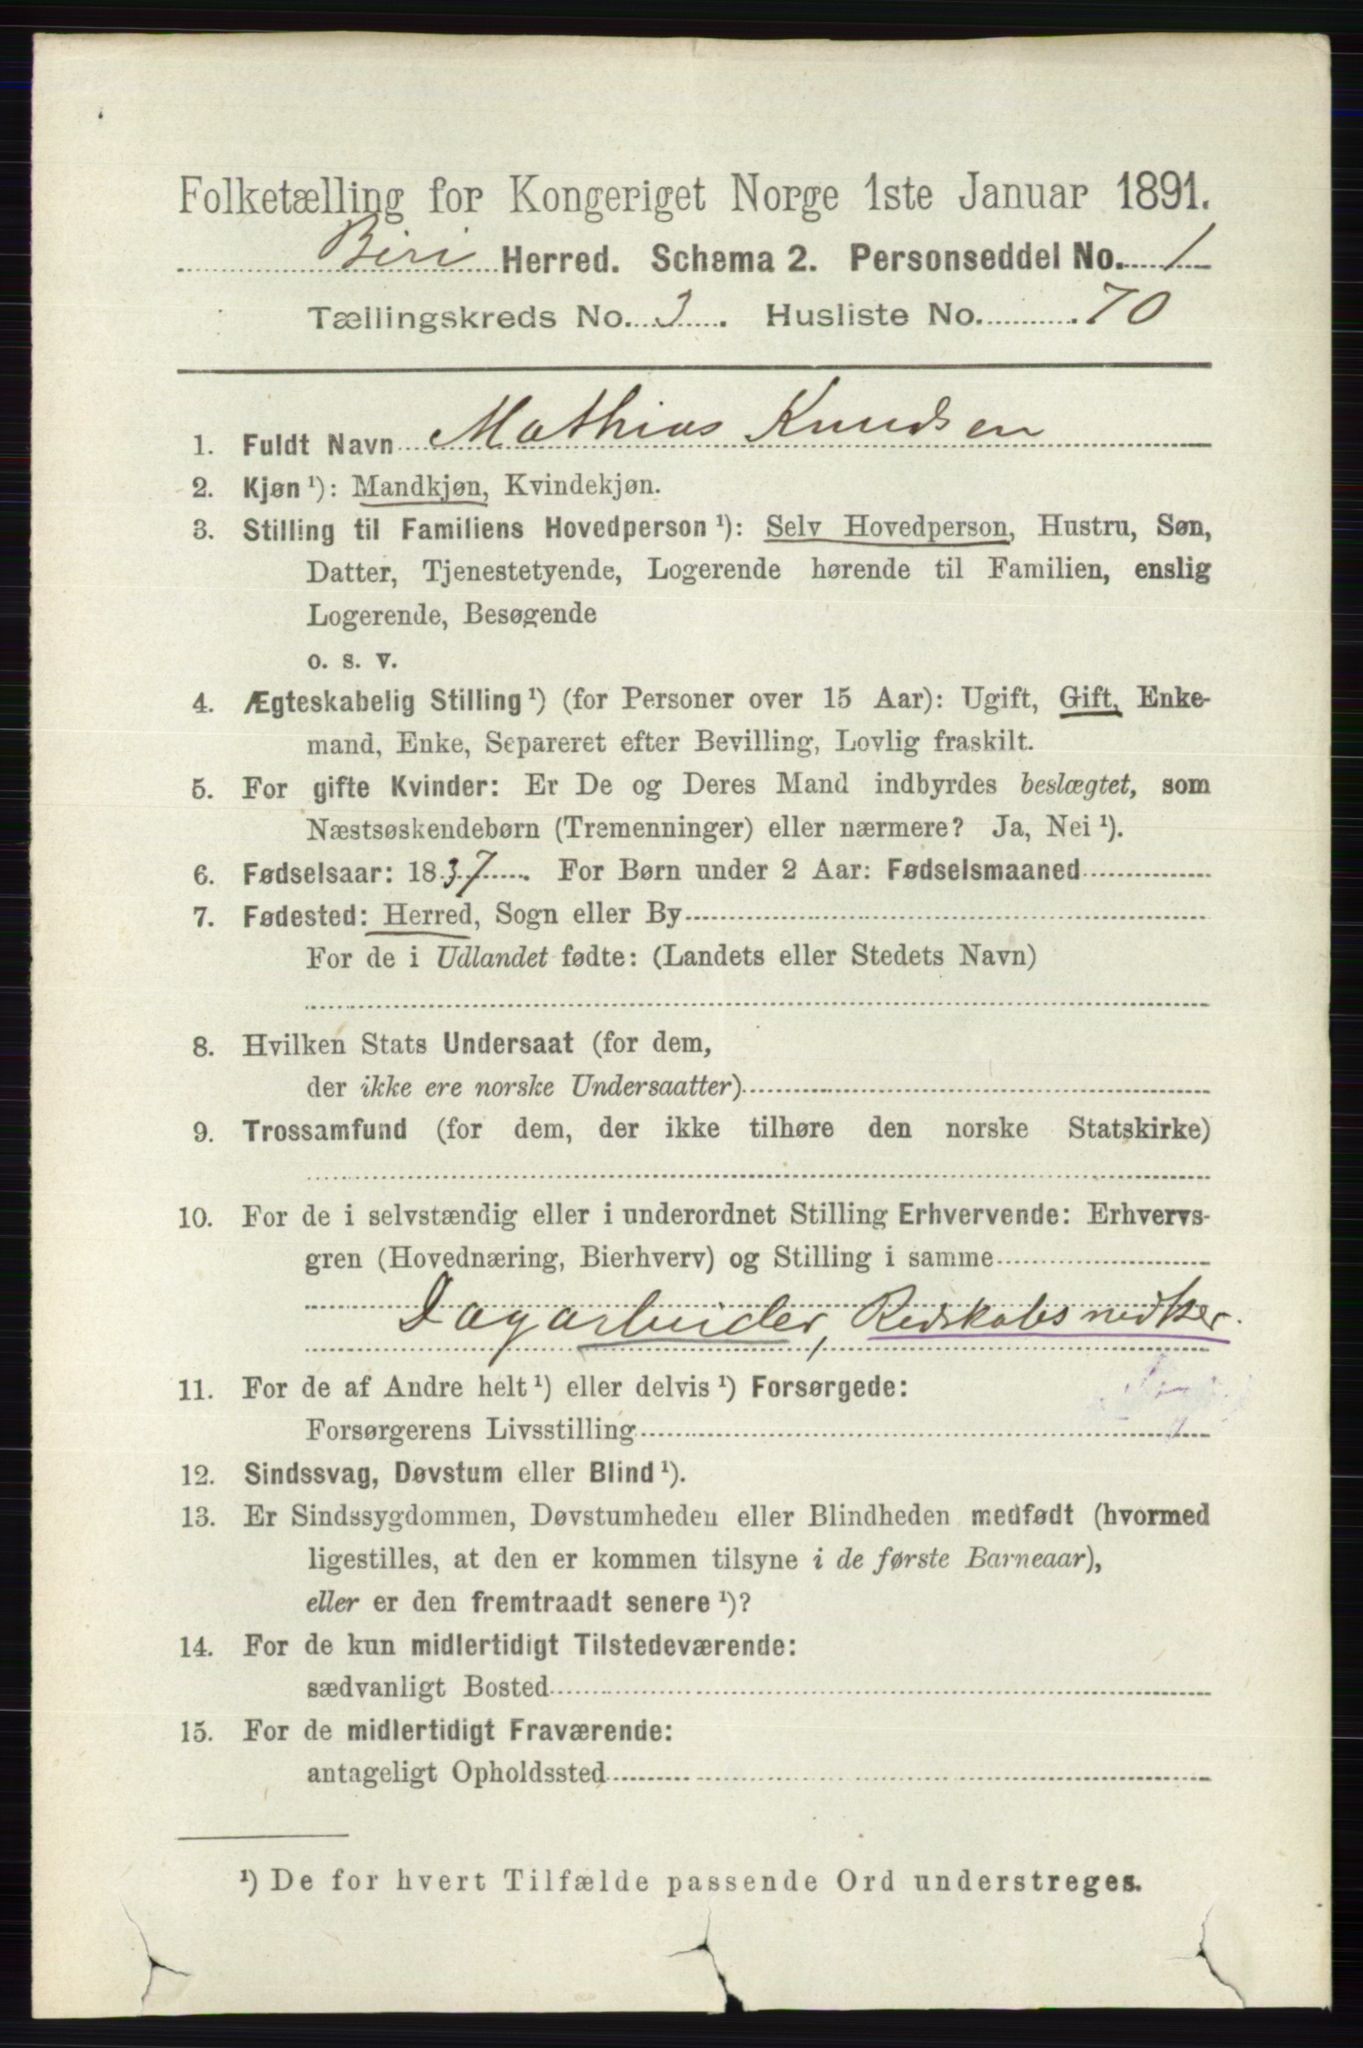 Folketælling for Kongeriget Norge 1ste Januar 1891.
Biri Herred. Schema 2. Personseddel No. 1
Tællingskreds No. 3. Husliste No. 70
1. Fuldt Navn Mathias Knudsen
2. Kjøn¹): Mandkjøn, Kvindekjøn.
3. Stilling til Familiens Hovedperson¹): Selv Hovedperson, Hustru, Søn,
Datter, Tjenestetyende, Logerende hørende til Familien, enslig
Logerende, Besøgende
o. s. v.
4. Ægteskabelig Stilling¹) (for Personer over 15 Aar): Ugift, Gift, Enke-
mand, Enke, Separeret efter Bevilling, Lovlig fraskilt.
5. For gifte Kvinder: Er De og Deres Mand indbyrdes beslægtet, som
Næstsøskendebørn (Tremenninger) eller nærmere? Ja, Nei¹).
6. Fødselsaar: 1837. For Børn under 2 Aar: Fødselsmaaned
7. Fødested: Herred, Sogn eller By
For de i Udlandet fødte: (Landets eller Stedets Navn)
8. Hvilken Stats Undersaat (for dem,
der ikke ere norske Undersaatter)
9. Trossamfund (for dem, der ikke tilhøre den norske Statskirke)
10. For de i selvstændig eller i underordnet Stilling Erhvervende: Erhvervs-
gren (Hovednæring, Bierhverv) og Stilling i samme
Dagarbeider, Redskabsnedker.
11. For de af Andre helt¹) eller delvis¹) Forsørgede:
Forsørgerens Livsstilling
12. Sindssvag, Døvstum eller Blind¹).
13. Er Sindssygdommen, Døvstumheden eller Blindheden medfødt (hvormed
ligestilles, at den er kommen tilsyne i de første Barneaar),
eller er den fremtraadt senere¹)?
14. For de kun midlertidigt Tilstedeværende:
sædvanligt Bosted
15. For de midlertidigt Fraværende:
antageligt Opholdssted
¹) De for hvert Tilfælde passende Ord understreges.